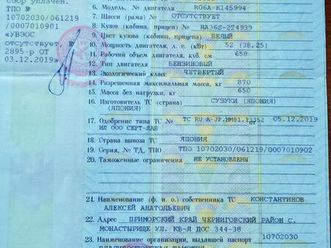 сбор уплачен.
ТПО №
10702030/061219
/0007010901
"УВЭОС
отсутствует"
2895-р ОТ
03.12.2019
6. Модель, № двигателя R06A-K145994
7. Шасси (рама) № ОТСУТСТВУЕТ
8. Кузов (кабина, прицеп) № HA36S-224939
9. Цвет кузова (кабины, прицепа) БЕЛЫЙ
10. Мощность двигателя, л. с. (кВт) 52 (38,25)
11. Рабочий объем двигателя, куб. см 658
12. Тип двигателя БЕНЗИНОВЫЙ
13. Экологический класс ЧЕТВЕРТЫЙ
14. Разрешенная максимальная масса, кг 870
15. Масса без нагрузки, кг 650
16. Изготовитель ТС (страна) СУЗУКИ (ЯПОНИЯ)
(ЯПОНИЯ)
17. Одобрение типа ТС № ТС RU А-JP. 05.12.2019
18. Страна вывоза ТС ЯПОНИЯ
19. Серия, № ТД, ТПО ТПО 10702030/061219/0007010902
20. Таможенные ограничения НЕ УСТАНОВЛЕНЫ
21. Наименование (ф. и. о.) собственника ТС КОНСТАНТИНОВ
АЛЕКСЕЙ АНАТОЛЬЕВИЧ
22. Адрес ПРИМОРСКИЙ КРАЙ ЧЕРНИГОВСКИЙ РАЙОН С.
МОНАСТЫРИЩЕ УЛ. КВ-Л ДОС 344-38
23. Наименование организации, выдавшей паспорт 10702030